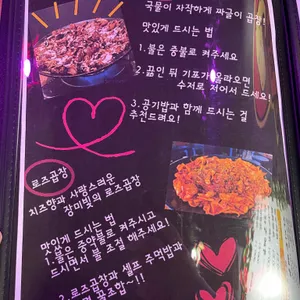 국물이 자작하게 짜글이 곱창!
맛있게 드시는 법
1.불은 중불로 켜주세요
2.끓인 뒤 기포가 올라오면
수저로 저어서 드세요!
3.공기밥과 함께 드시는 걸
추천드려요!
로즈곱창
치즈향과 사랑스러운
장미빛의 로즈곱창
맛있게 드시는 법
1.불은 중약불로 켜주시고
드시면서 불 조절 해주세요!
2.로즈곱창과 셀프 주먹밥과
꿀조합~!!